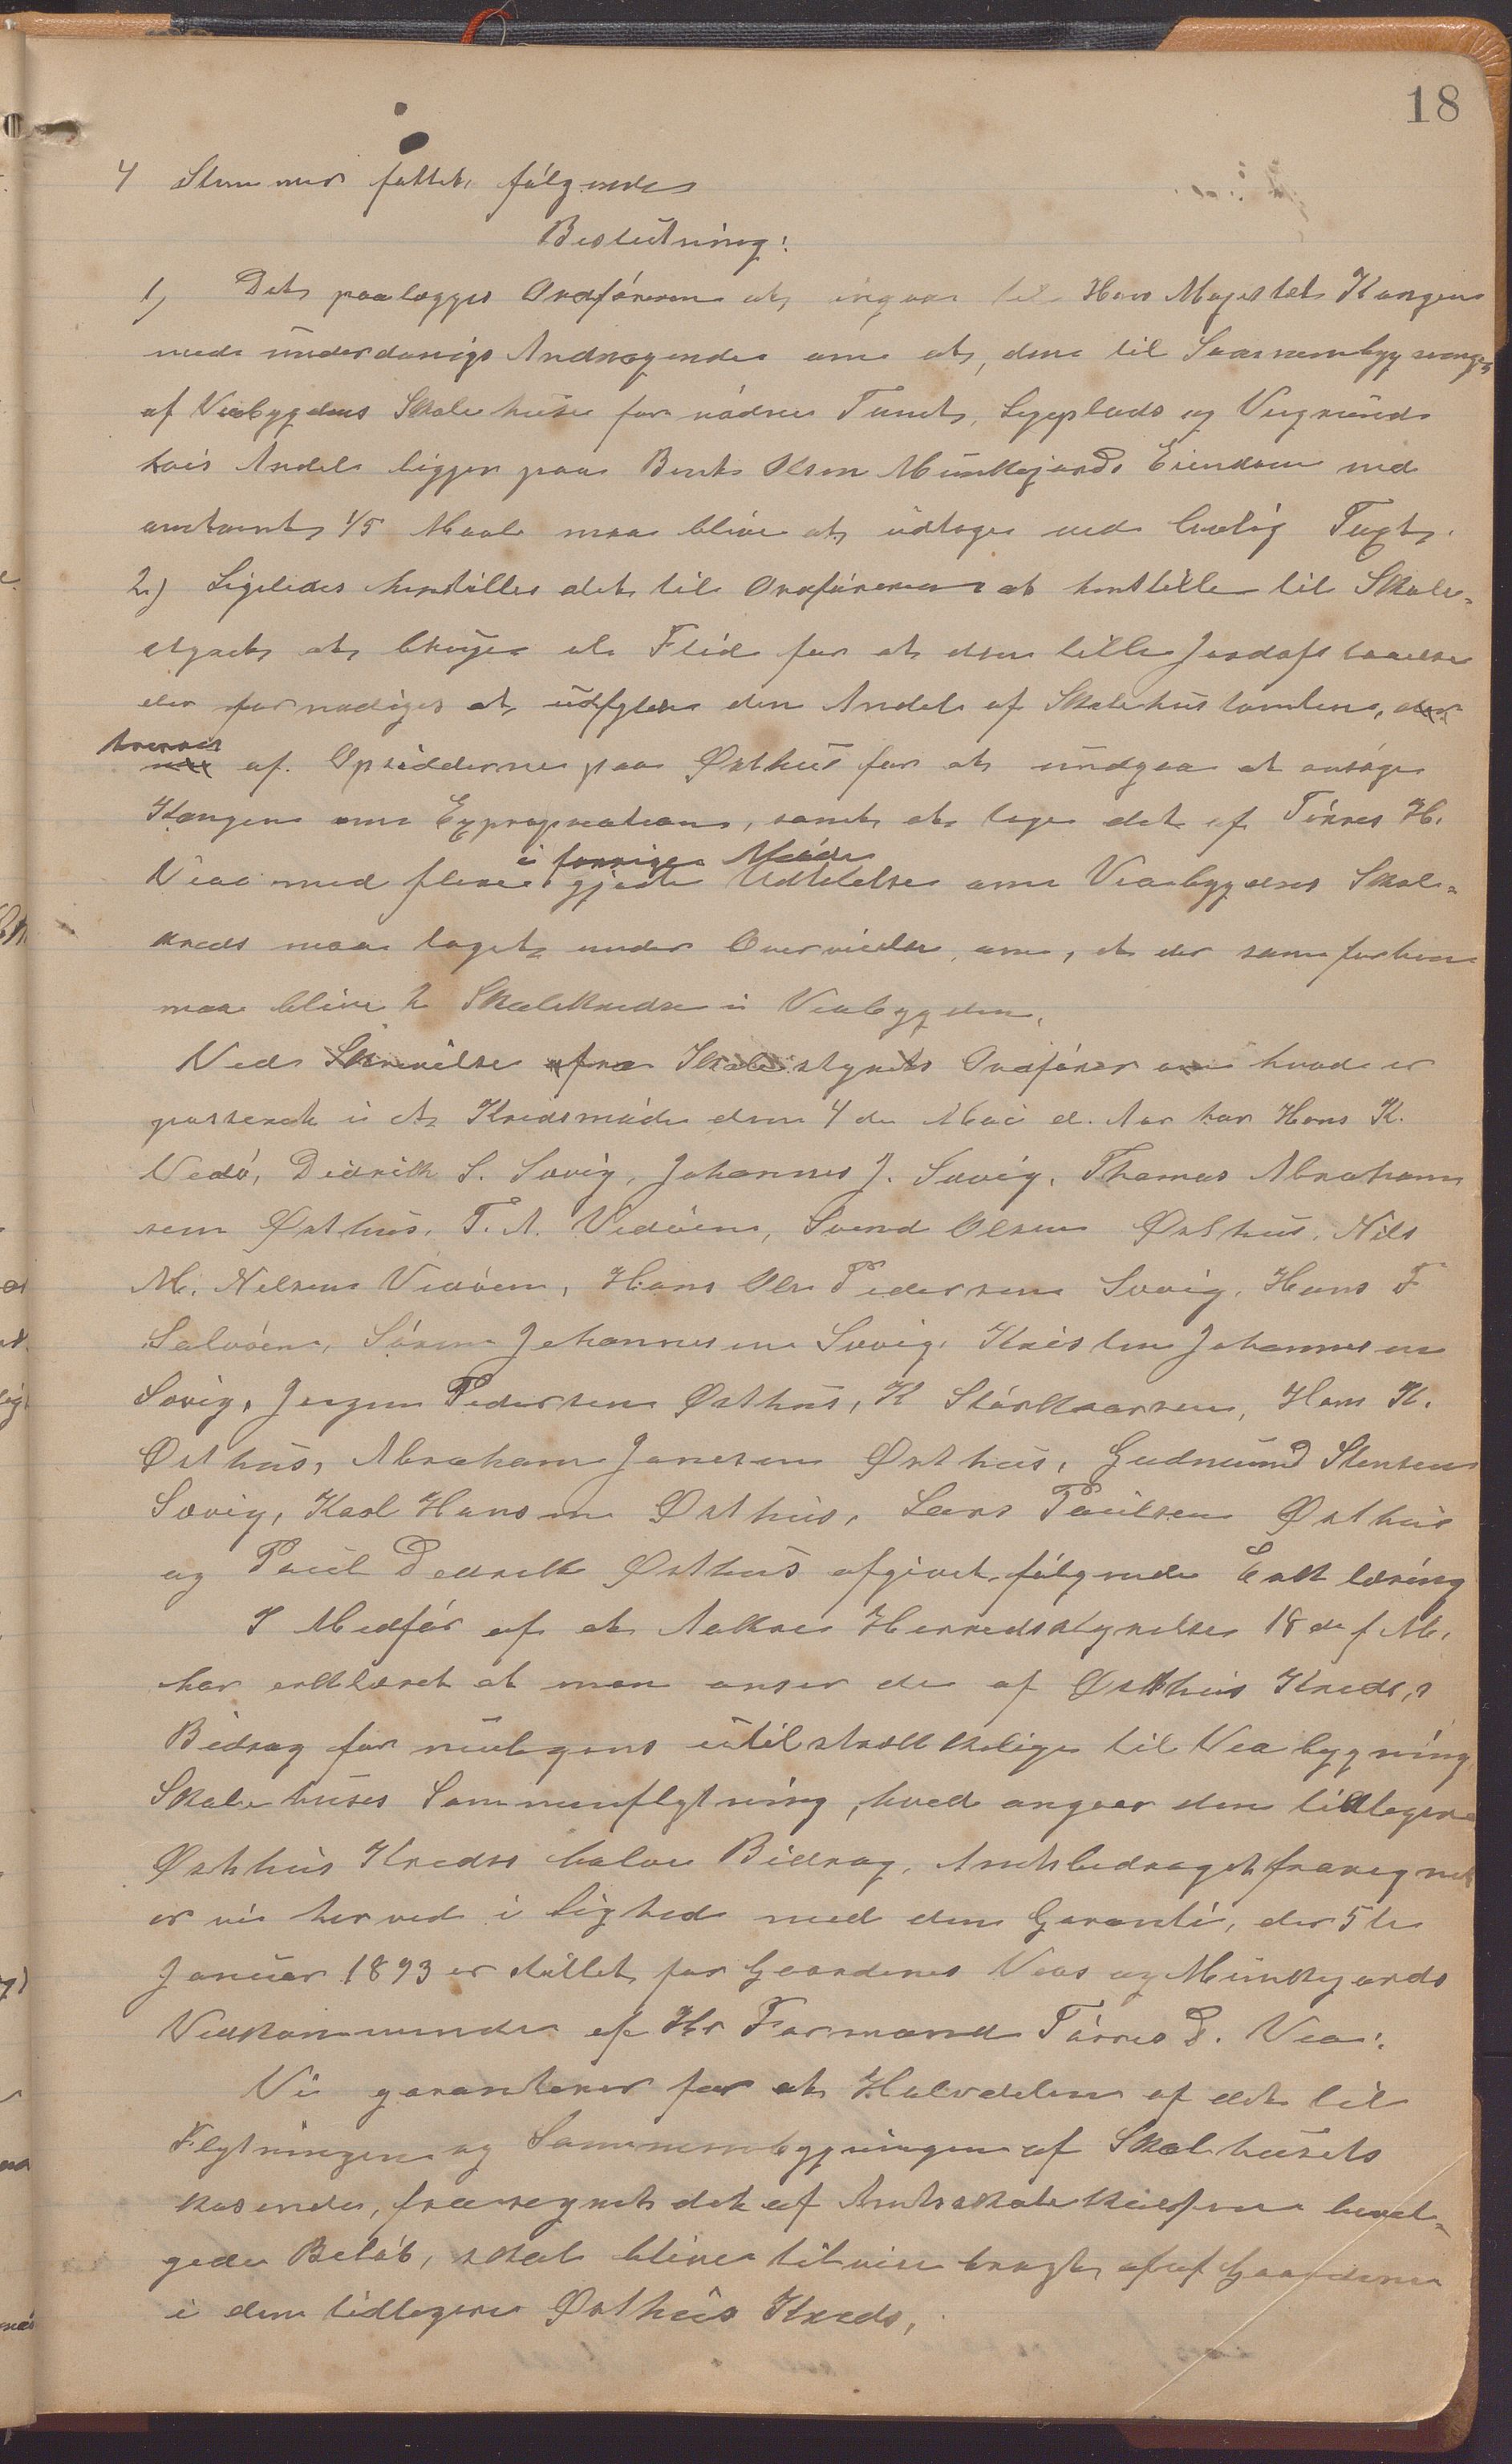 18
4 Stemmer fattet følgende
Beslutning:
1) Det paalægges Ordføreren at ingaa til Hans Majestæt Kongen
med underdanigs Andragende om at, den til Sammenbygning
af Veabygdens Skolehuse for nødne Tomt, Legeplads og Veigrund
hvis Andel ligger paa Bent Olsen Munkejords Eiendom ved
omtomt 1/5 Maal maa blive at udtage ved lovlig Taxt.
2) Ligeledes henstilles det til Ordføreren at henstille til Skole-
styret at bruge al Flid for at den lille Jordafstaaelse
der fornødiges at udfylde den Andel af Skolehustomten, der
kræves af Opsidderne paa Østhus for at undgaa at ansøge
Kongen om Expropriation, samt at tage det af Tørres H.
i forrige Møde
Vea med flere gjorte Udtalelse om Veabygdens Skole-
kreds maa taget under Overveielse, om, at der som forhen
maa blive 2 Skolekredse i Veabygden.
Ved Skrivelse fra Skolestyrets Ordfører om hvad er
passeret i et Kredsmøde den 4de Mai d. Aar har Hans K.
Vedø, Didrik S. Søvig, Johannes J. Søvig, Thomas Abraham
sen Østhus, T. A. Vedøen, Svend Olsen Østhus, Nils
M. Nilsen Vedøen, Hans Ols Pedersen Søvig, Hans F
Salvøen, Søren Johannesen Søvig, Kristen Johannesen
Søvig, Jørgen Pedersen Østhus, K Størkaarsen, Hans K.
Østhus, Abraham Jonesen Østhus, Gudmund Stensen
Søvig, Karl Hansen Østhus, Lars Poulsen Østhus
og Poul Dedrik Østhus afgivet følgende Erklæring
I Medfør af at Aakre Herredsstyrelse 18 de f. M.
har erklæret at man anser de af Østhus Kreds,s
Bidrag for utilstrækkelige til Veabygning
Skolehuses Sammenflytning, hvad angaar den tidligere
Østhus Kredss halve Bidrag, Amtsbidraget fraregnet
er vi herved i Lighed med den Garanti, der 5te
Januar 1893 er stillet for Gaardenes Veas og Munkejords
Vedkommende af Hr Formand Tørres D. Vea:
Vi garanterer for at Halvdelen af det til
Flytningen og Sammenbygningen af Skolehusets
kosende, fraregnet det af Amtsskolekassen bevil-
gede Beløb, skal blive tilveiebragt af af Gaardene
i den tidligere Østhus Kreds,